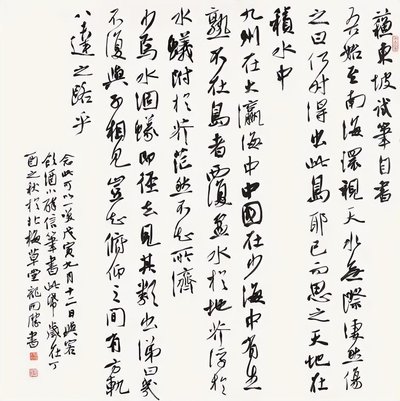 蘇東坡試筆自書
吾始至南海環視天水無際悽然傷
之曰何時得出此島耶已而思之天地在
積水中
九州在大瀛海中中國在少海中有生
孰不在島者覆盆水於地芥浮於
水蟻附於芥茫然不知所濟
少焉水涸蟻即徑去見其類出涕曰幾
不復與子相見豈知俯仰之間有方軌
八達之路乎
念此可以一笑戊寅九月十二日與客
飲酒小醉信筆書此紙歲在丁
酉之秋於北草堂龍開勝書